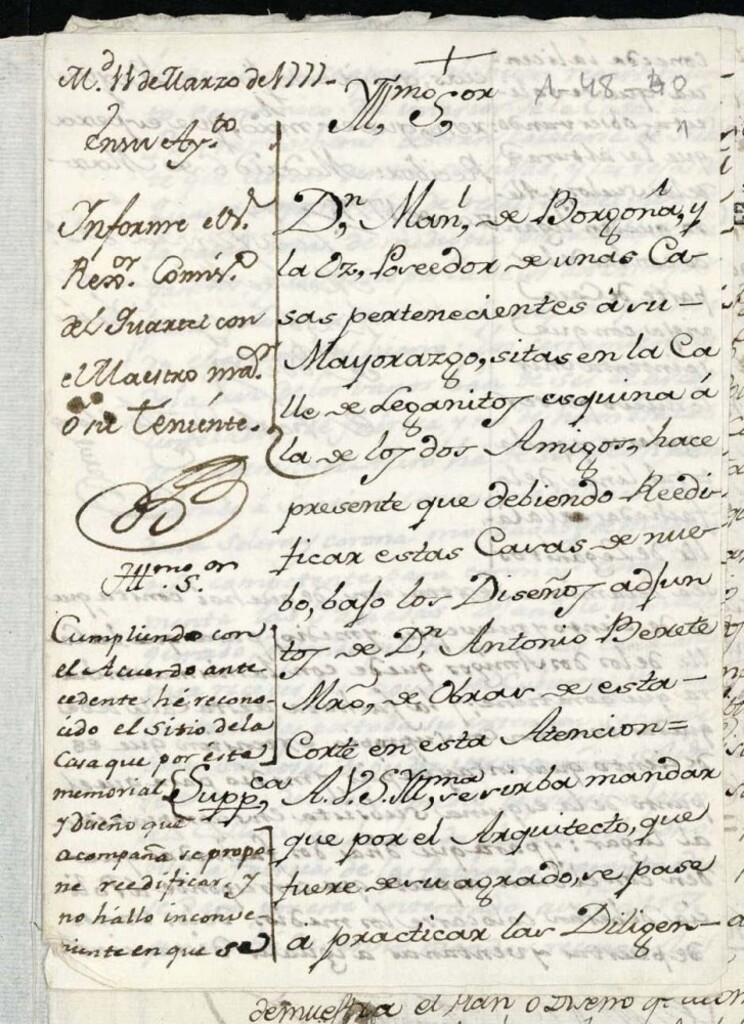 M.d 11 de Marzo de 1777-
en su Ay.to
Informe el S.r
Rexr. Comis.o
del Quartel con
el Maestro ma.r
ô su Teniente.
Yll.mo S.or
Cumpliendo con
el Acuerdo ante
cedente hé recono-
cido el sitio dela
Casa que por este
memorial,
y Diseño que
acompaña se propo-
ne reedificar, y
no hállo inconve-
niente en que se
Yll.mo S.or
1 48
D.n Man.l de Borgoña, y
la Oz, Poseedor de unas Ca-
sas pertenecientes â su-
Mayorazgo, sitas en la Ca
lle de Leganitos esquina á
la de los dos Amigos, hace
presente que debiendo Reedi-
ficar estas Casas de nue-
bo, bajo los Diseños adjun
tos de D.n Antonio Berete
Mrô, de Obras de esta-
Corte en esta Atencion=
Supp.ca A.V.S.Yll.ma se sirba mandar
que por el Arquitecto, que
fuere de su agrado, se pase
â practicar las Diligen-
demuestra el Plan o Diseño q.e